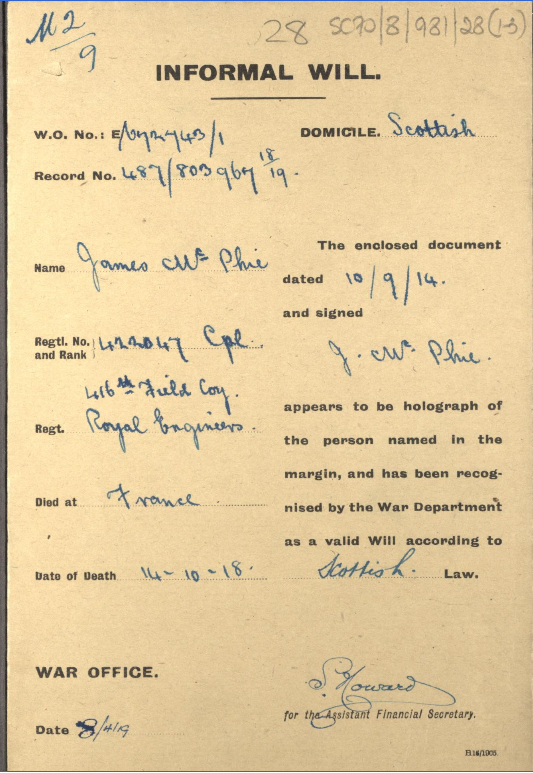 M2/9
28 SC70/8/981/28(1-3)
INFORMAL WILL.
W.O. No.: E/672743/1
DOMICILE. Scottish
Record No. 487/803967 18/19.
Name James McPhie
The enclosed document
dated 10/9/14.
and signed
Regtl. No. and Rank 422047 Cpl.
J. McPhie.
416th Field Coy.
Regt. Royal Engineers.
appears to be holograph of
the person named in the
margin, and has been recog-
nised by the War Department
as a valid Will according to
Scottish. Law.
Died at France
Date of Death 14-10-18.
WAR OFFICE.
S. Howard
for the Assistant Financial Secretary.
Date 8/4/19